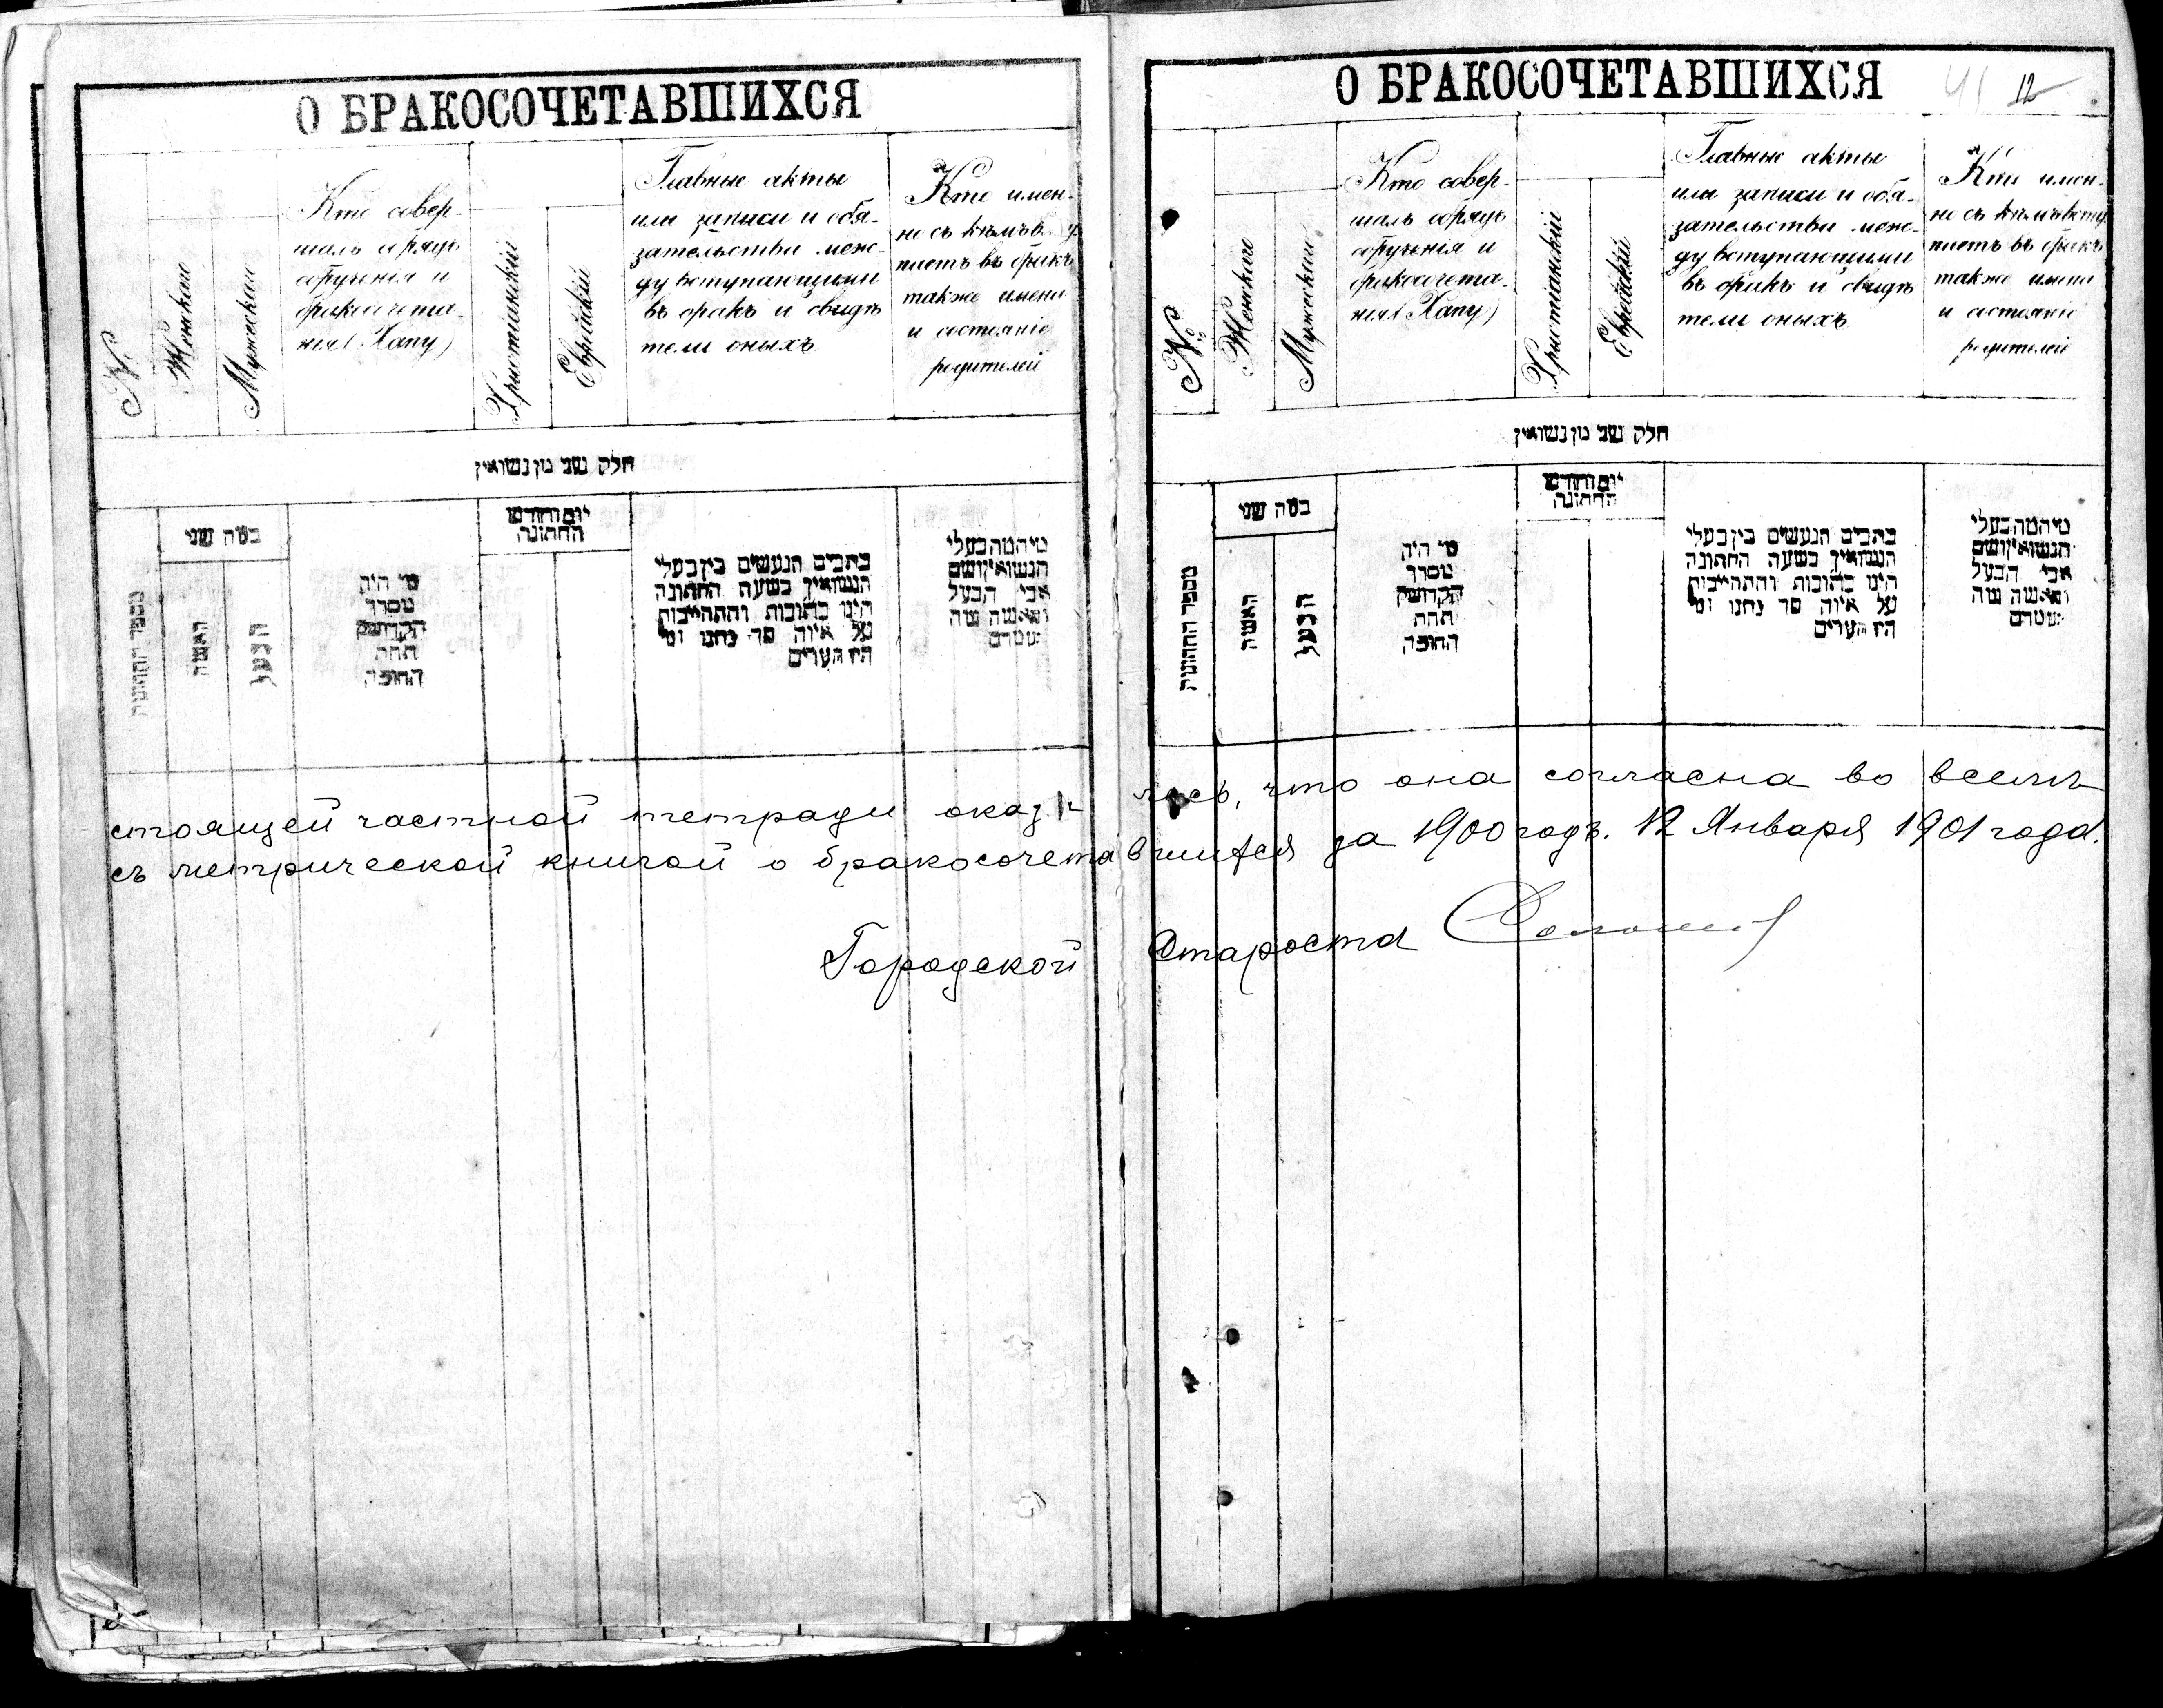 О БРАКОСОЧЕТАВШИХСЯ
№
Женскаго
Мужескаго
Кто совер-
шалъ обрядъ
обрученія и
бракосочета-
нія (Хапу)
Христіанскій
Еврейскій
Главные акты
или записи и обя-
зательства меж-
ду вступающими
въ бракъ и свидѣ
тели оныхъ
Кто имен-
но съ кѣмъ
паетъ въ бракъ
также имена
и состояніе
родителей
חלק שני מן נשואין
מספר החתונות
כמה שני
האשה
הבעל
מי היה
מסדר
הקדושין
תחת
החופה
יום וחודש
החתונה
כתבים הנעשים בין בעלי
הנשואין בשעת החתונה
היינו כתובות והתחייבות
על איזה סך נתנו ומי
היו העדים
מי המה בעלי
הנשואין ושם
אבי הבעל
והאשה
стоящей частной тетради оказа
съ метрической книгой о бракосочета
Городской
О БРАКОСОЧЕТАВШИХСЯ
41 12
№
Женскаго
Мужескаго
Кто совер-
шалъ обрядъ
обрученія и
бракосочета-
нія (Хапу)
Христіанскій
Еврейскій
Главные акты
или записи и обя-
зательства меж-
ду вступающими
въ бракъ и свидѣ
тели оныхъ
Кто имен-
но съ кѣмъ вступ
паетъ въ бракъ
также имена
и состояніе
родителей
חלק שני מן נשואין
מספר החתונות
כמה שני
האשה
הבעל
מי היה
מסדר
הקדושין
תחת
החופה
יום וחודש
החתונה
כתבים הנעשים בין בעלי
הנשואין בשעת החתונה
היינו כתובות והתחייבות
על איזה סך נתנו ומי
היו העדים
מי המה בעלי
הנשואין ושם
אבי הבעל
והאשה
лось, что она согласна во всемъ
вшихся за 1900 годъ. 12 Января 1901 года.
Староста